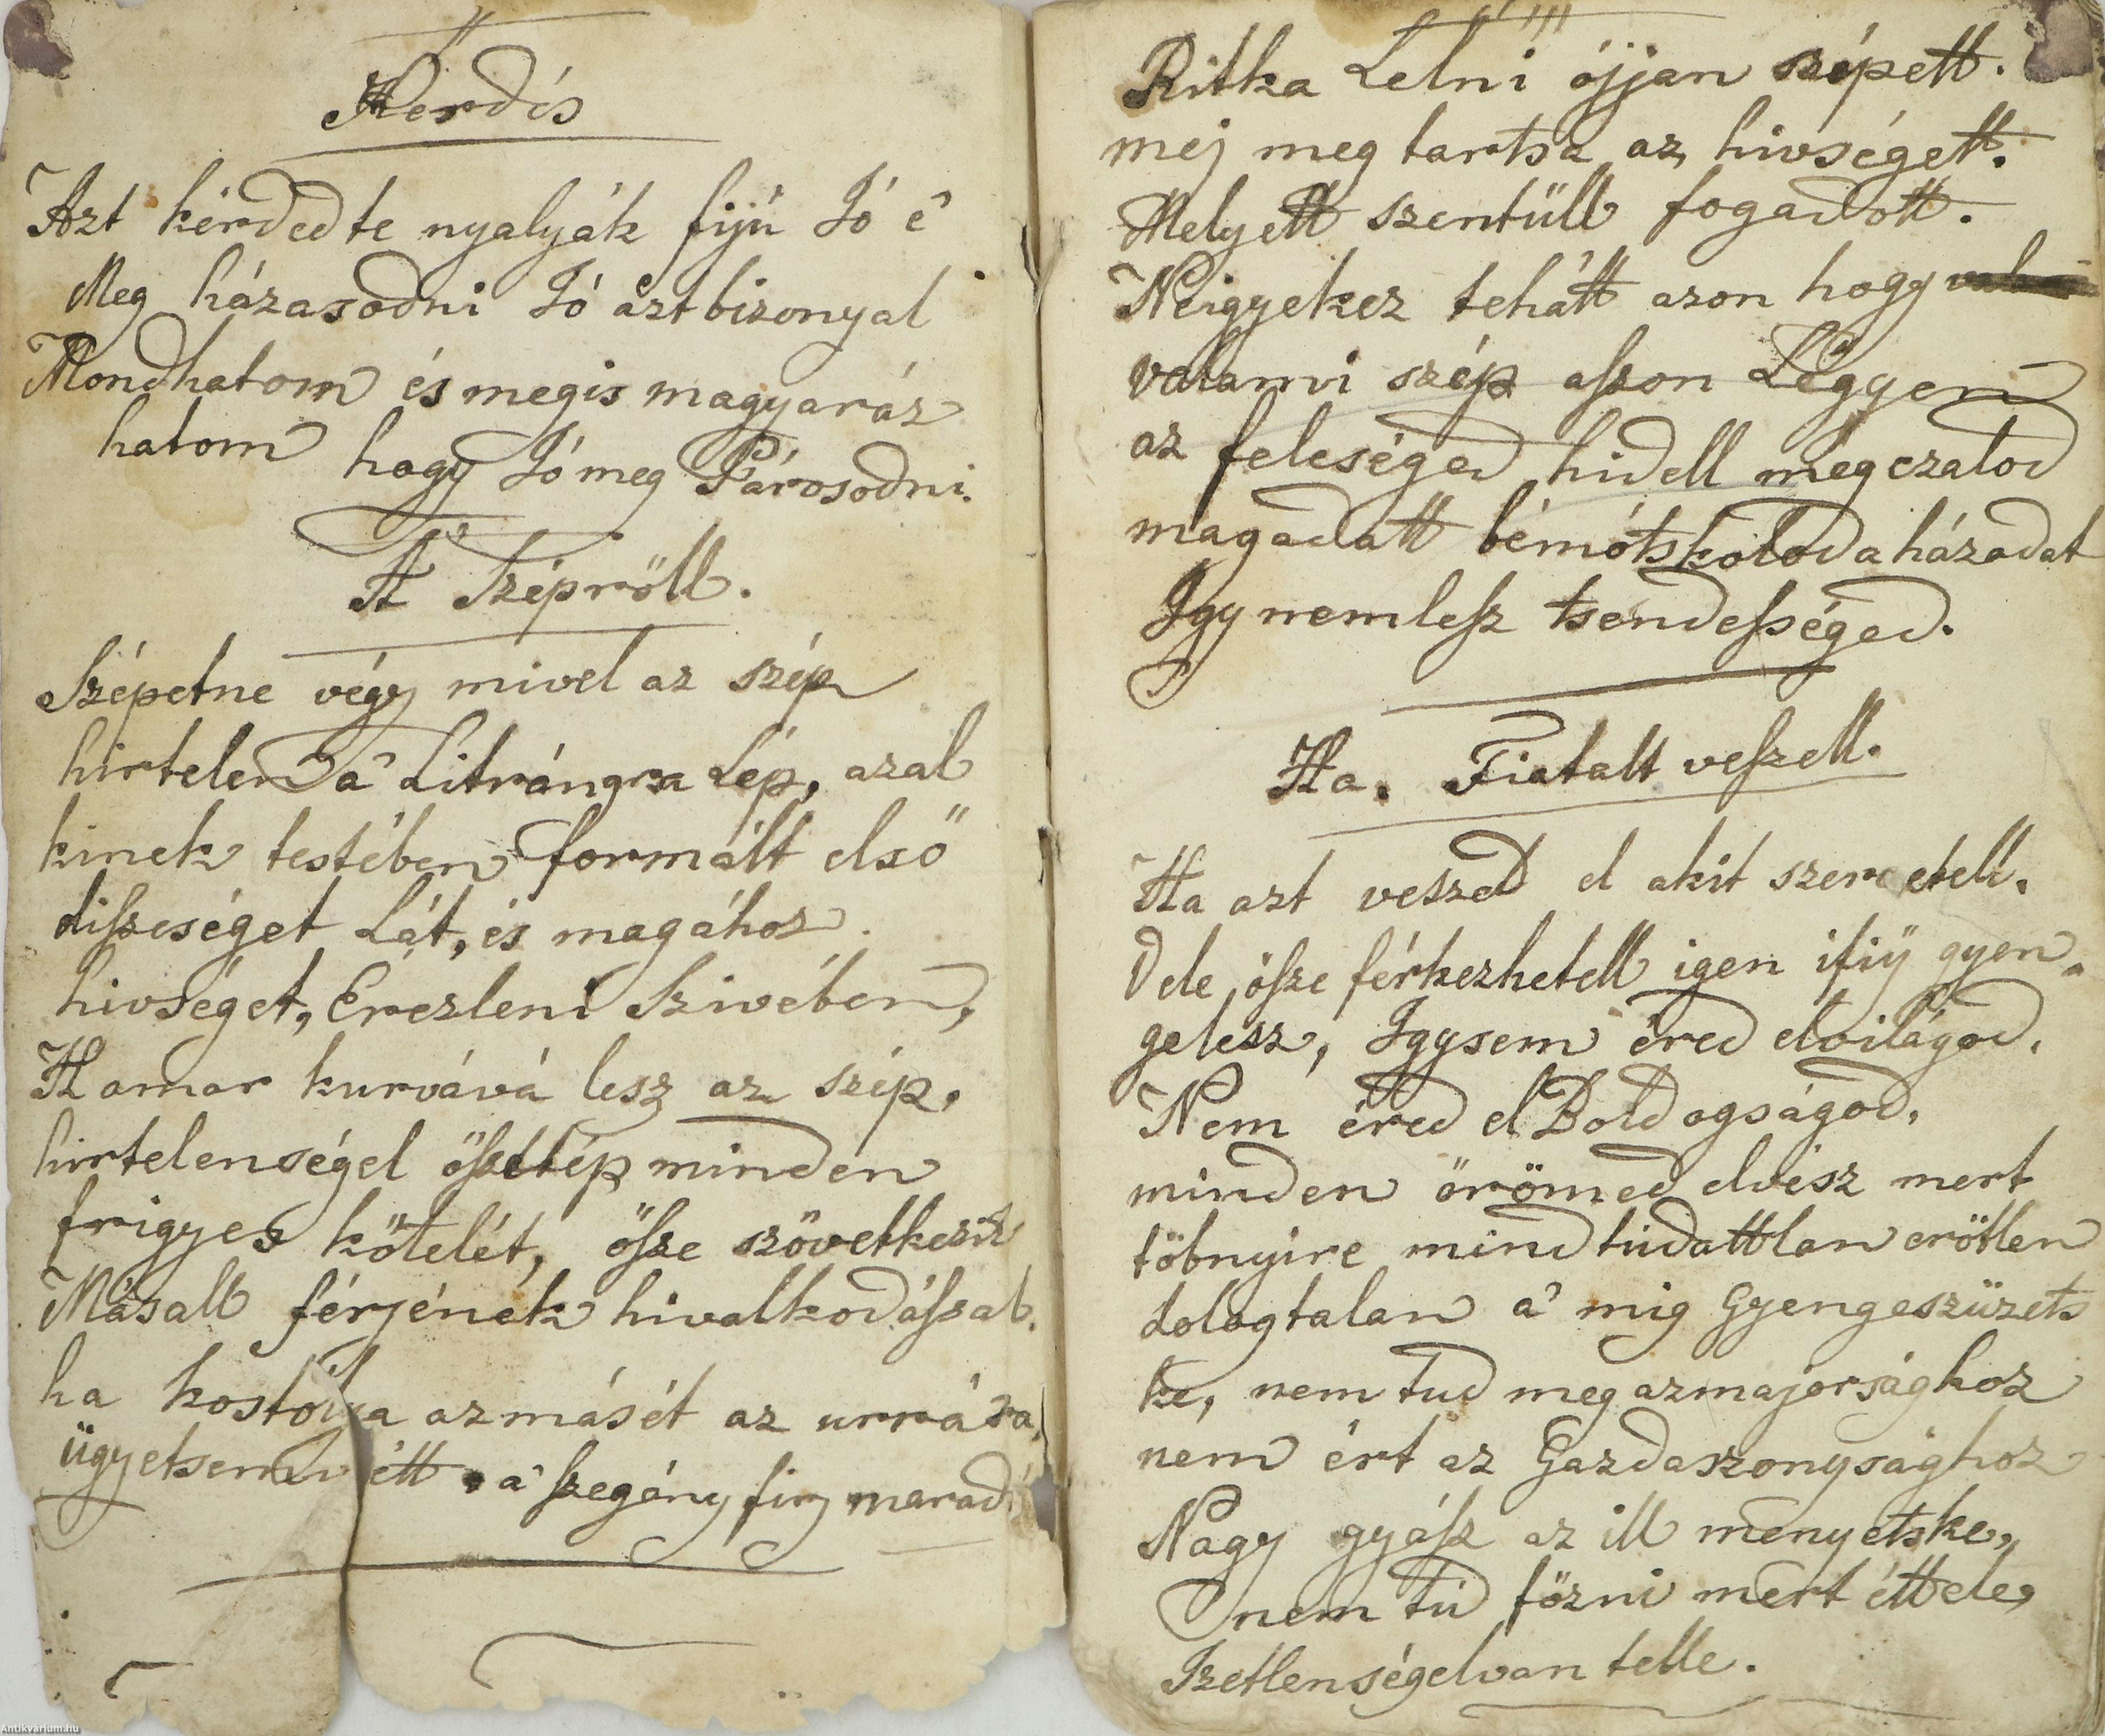 Kerdés
Azt kérdedte nyalyák fijú Jó é
Meg házasodni Jó azt bizonyal
Mondhatom és megis magyaráz
hatom hogy Jó meg Párosodni.
A Szépröll.
Szépetne végy mivel az szép
hirtelen a Litrángra Lép, azal
kinek testében formált elsö
disszeséget Lát, és magához
hivséget, Erezleni Szivében,
Hamar kurvává lesz az szép,
hirtelenségel össetép minden
frigyes kötelét, össze szövetkezik
Másall férjének hivalkodással.
ha kostólya azmását az urrára,
ügyetsemvétt. a szegény firj marad
Ritka Lelni ójjan szépett.
mej meg tartsa az hivségett.
Melyett szentüll fogadott.
Neigyekez tehátt azon hogy
valami szép asszon Légyen
az feleséged hidell megczalod
magadatt bémótskolod a házadat
Igy nemlesz tsendességed.
Ha. Fiatalt veszell.
Ha azt veszed el akit szeretell.
Vele össze férkezhetell igen ifiÿ gyen
gelesz, Igysem éred elvilágod.
Nem éred el Boldogságod,
minden örömed elvész mert
többnyire mind tudattlan erötlen
dologtalan a mig Gyengeszüzets
ke, nem tud meg azmajorsághoz
nem ért az Gazdaszonysághoz
Nagy gyász az ill menyetske,
nem tud fözni mert éttele,
Izetlenségelvan telle.
Antikvárium.hu